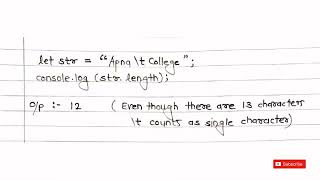 let str = "Apna \t College";
console.log (str.length);
o/p :- 12 ( Even though there are 13 characters
\t counts as single character)
Subscribe